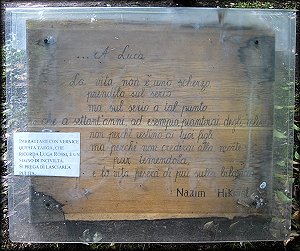 ... A Luca
La vita non è uno scherzo
prendila sul serio
ma sul serio a tal punto
che a settant'anni ad esempio pianterai degli ulivi
non perché restino ai tuoi figli
ma perché non crederai alla morte
pur temendola
e la vita peserà di più sulla bilancia
Nazim Hikmet
IMBRATTARE CON VERNICE
QUESTA TARGA, CHE
RICORDA LUCA ROSSI, È UN
SEGNO DI INCIVILTÀ.
SI PREGA DI LASCIARLA
PULITA